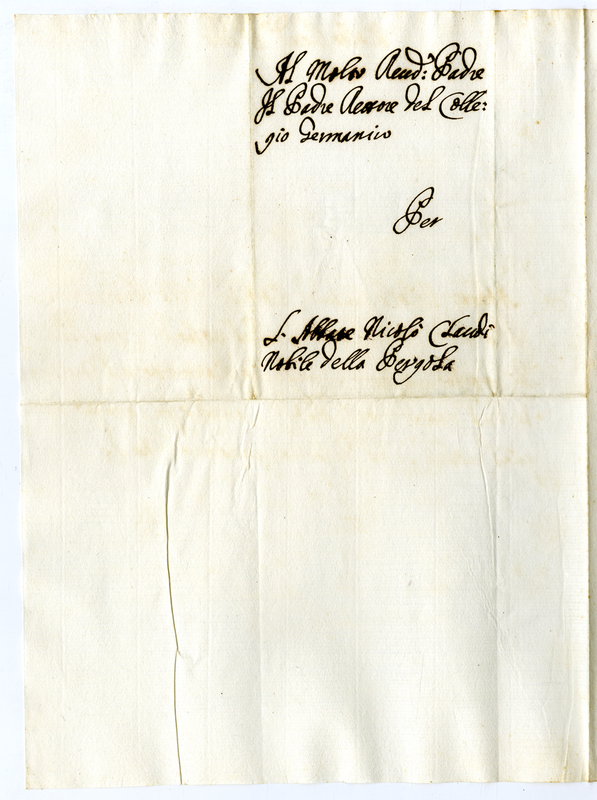 Al Molto Reud: Padre
Il Padre Rettore del Colle:
gio Germanico
Per
L. Abbate Nicolò Claudi
Nobile della Pergola